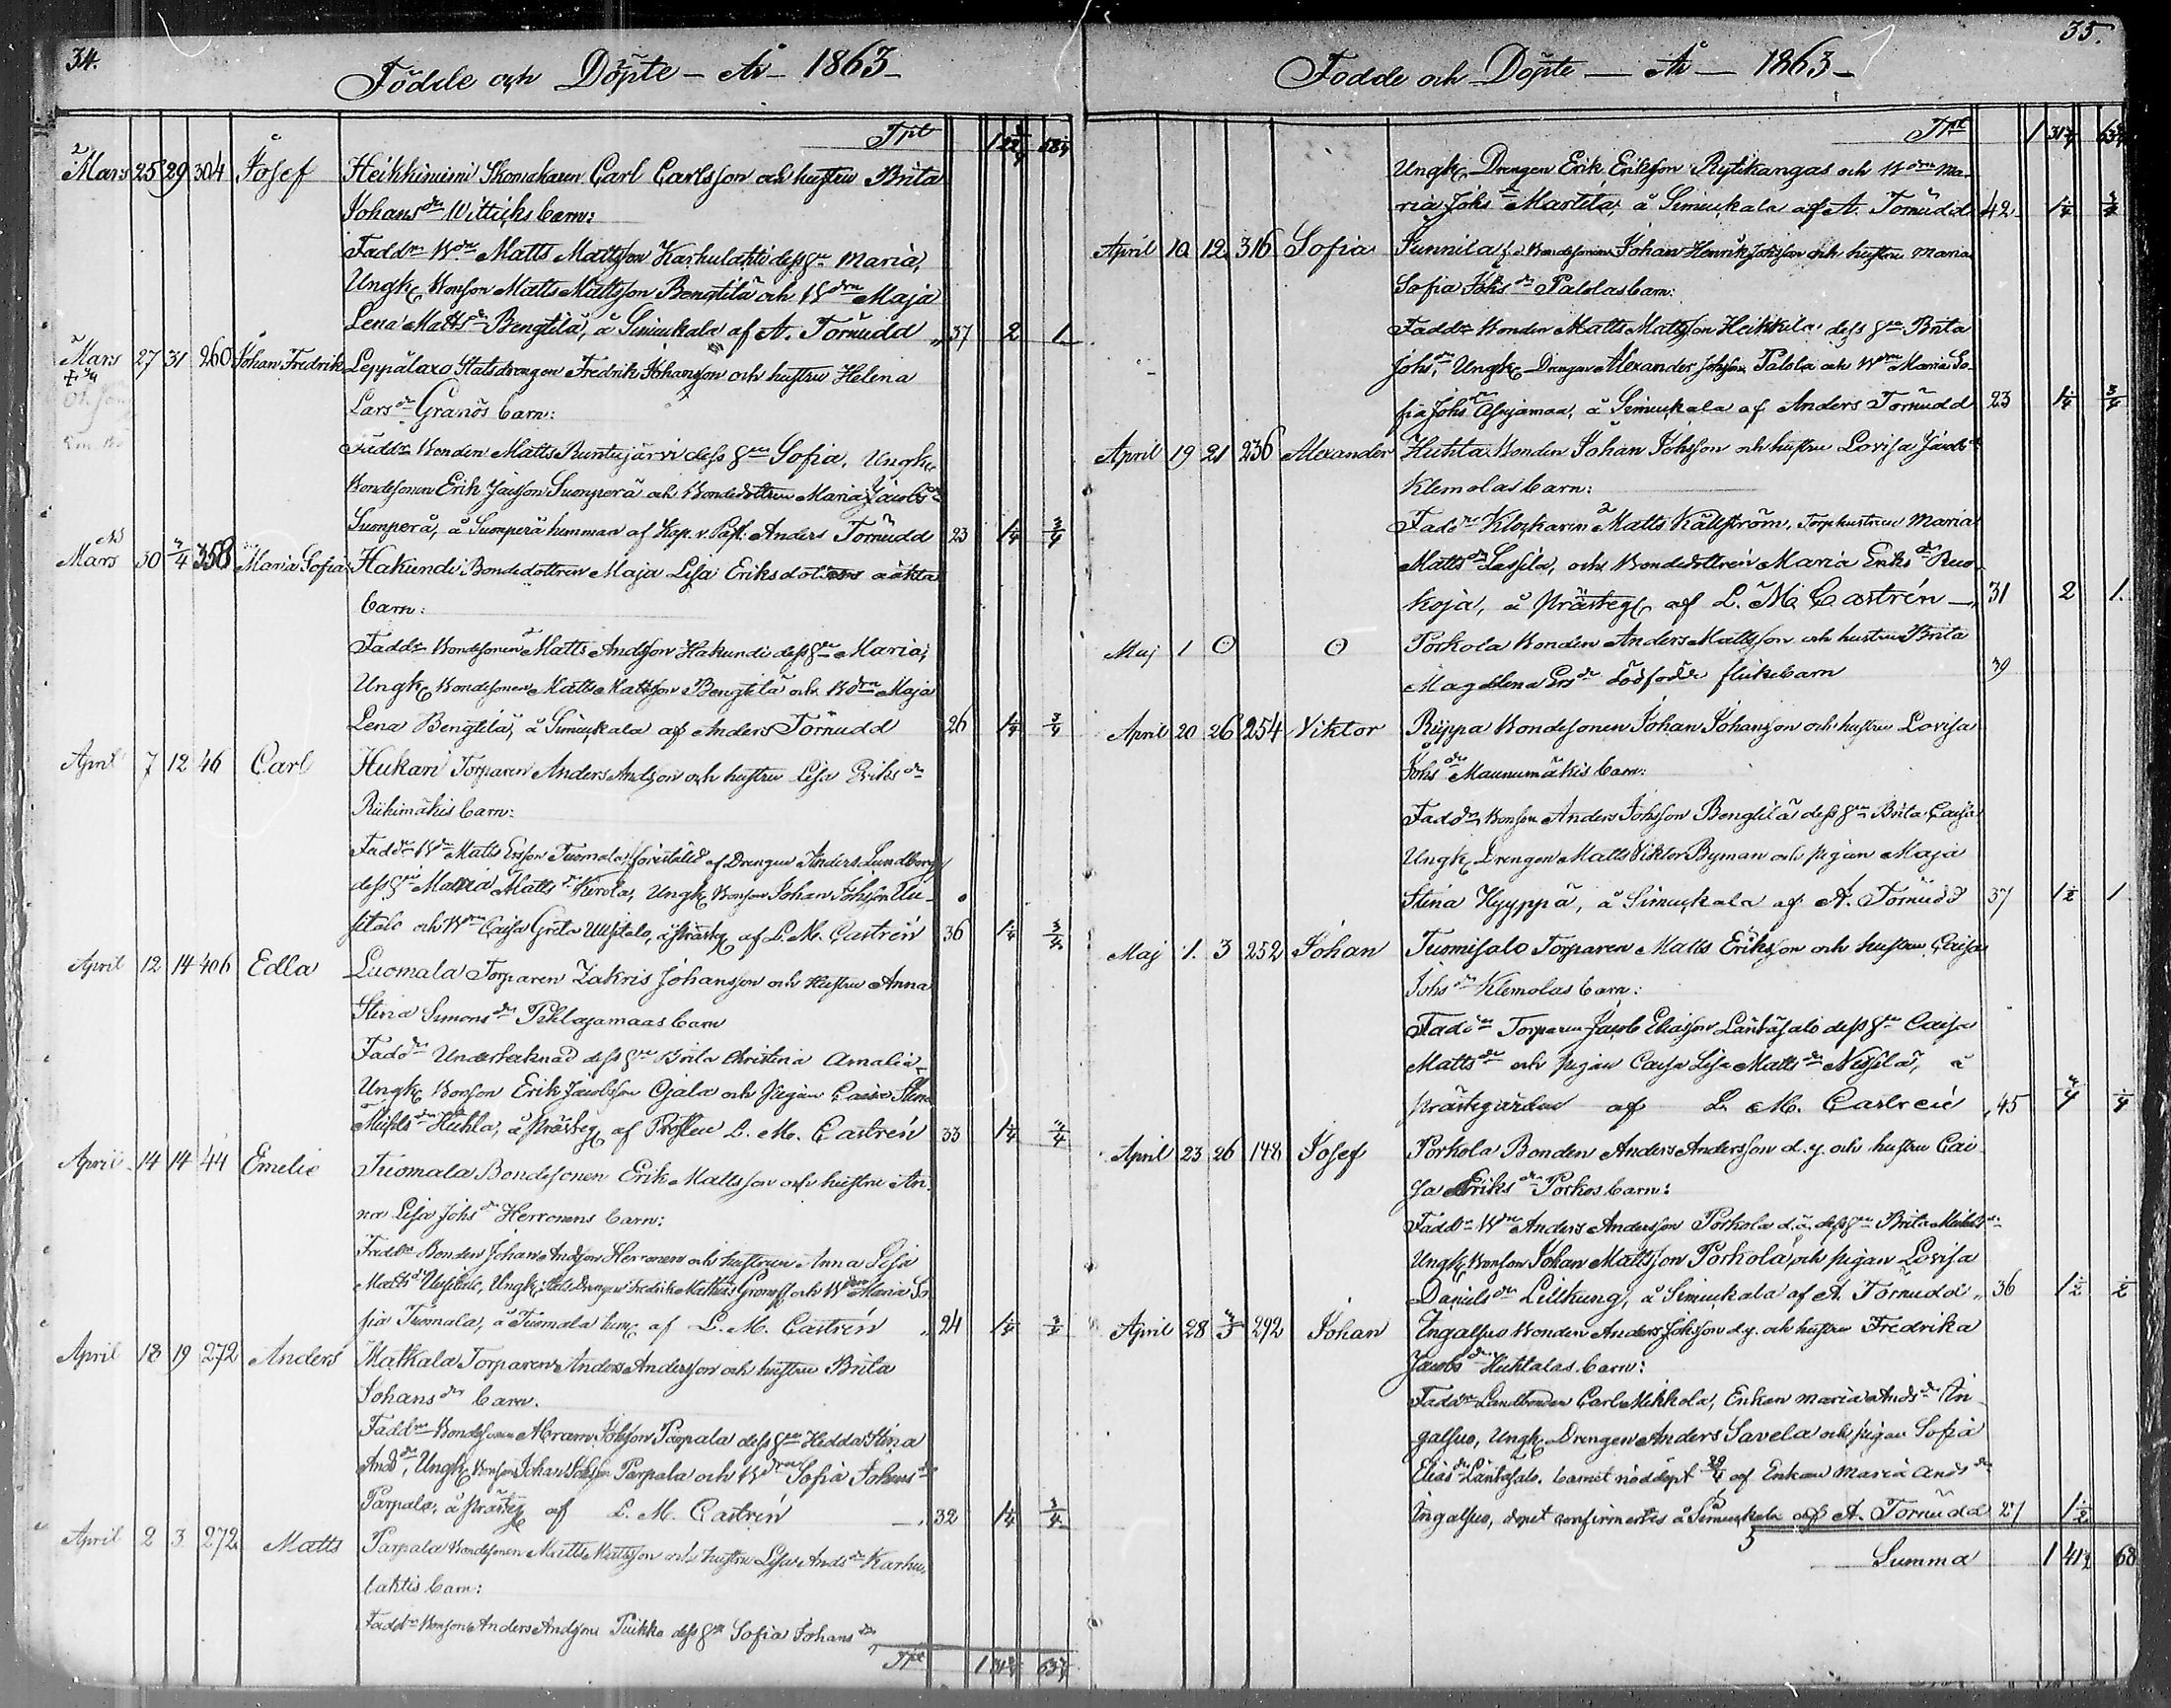 34.
Födde och Döpte – År – 1863 –
Trpt 1 58¼
Mars 25 29 304 Josef Heikkiniemi Skomakaren Carl Carlsson och hustru Brita
Johans dr Wittichs barn:
Fadd. Matts Mattsson Karhulahti dess hu Maria,
Ungk Bonson Matts Mattsson Bengtilä och Maja
Lena Matts dr Bengtilä, å Simuckala af A. Tornudd 37 2 1
Mars 27 31 260 Johan Fredrik Leppälaxo Statsdrengen Fredrik Johansson och hustru Helena
Lars dr Granös barn:
Fadd. Bonden Matts Runtujärvi dess hu Sofia, Ungk
Bondesonen Erik Jacsson Suonperä och Bondedottren Maria Jacobs dr
Suonperä, å Suonperä hemman af Kap. v. Past. Anders Tornudd 23 1¼ ¾
Mars 30 358 Maria Sofia Hakundi Bondedottren Maja Lisa Eriksdotters oäkta
barn:
Fadd. Bondesonen Matts Andsson Hakundi dess hu Maria,
Ungk Bondesonen Matts Mattsson Bengtilä och Maja
Lena Bengtilä, å Simuckala af Anders Tornudd 26 1¼ ¾
April 7 12 46 Carl Hukari Torparen Anders Andsson och hustru Lisa Eriks dr
Riekimäkis barn:
Fadd. Matts Ersson Tuomala, föreställd af Drengen Anders Lundberg
dess hu Maria Matts dr Kerola, Ungk Bonson Johan Johsson Uu-
sitalo och Caisa Greta Uusitalo, å Prästeg af L. M. Castrén 36 1¼ ¾
April 12 14 406 Edla Luomala Torparen Zakris Johansson och Hustru Anna
Stina Simons dr Pehlajamaas barn
Fadd. Undertecknad dess hu Brita Christina Amalia,
Ungk Bonson Erik Jacobsson Ojala och Pigan Caisa Stina
Michls dr Huhta, å Prästeg af Prosten L. M. Castrén 33 1¼ ¾
April 14 14 44 Emelie Tuomala Bondesonen Erik Mattsson och hustru An-
na Lisa Johs dr Herronens barn:
Fadd. Bonden Johan Andsson Herronen och hustrun Anna Lisa
Matts dr Uusitalo, Ungk Drengen Fredrik Mathias och Maria So-
fia Tuomala, å Tuomala hem af L. M. Castrén 24 1¼ ¾
April 18 19 272 Anders Matkala Torparen Anders Andersson och hustru Brita
Johans dr barn.
Fadd. Bondesonen Abram Johsson Parpala dess hu Hedda Stina
And dr, Ungk Bonson Johan Johsson Parpala och Sofia Johans dr
Parpala, å Prästeg af L. M. Castrén 32 1¼ ¾
April 2 3 272 Matts Parpala Bondesonen Matts Mattsson och hustru Lisa Ands dr Karhu-
laktis barn:
Fadd. Bonson Anders Andsson Tuikka dess hu Sofia Johans dr
Trpt 1 31¾ 63¾
35.
Födde och Döpte — År — 1863 –
Trpt 1 31¾ 63¾
Ungk Drengen Erik Eriksson Rytikangas och Ma-
ria Johs dr Martila, å Simuckala af A. Tornudd 42 1¼ ¾
April 10 12 316 Sofia Junnila Bondesonen Johan Henrik Johsson och hustru Maria
Sofia Johs dr Palolas barn:
Fadd. Bonden Matts Mattsson Heikkilä dess hu Brita
Johs dr, Ungk Drengen Alexander Johsson Palola och Maria So-
fia Johs dr Asujamaa, å Simuckala af Anders Tornudd 23 1¼ ¾
April 19 21 236 Alexander Huhta Bonden Johan Johsson och hustru Lovisa Jacobs dr
Klemolas barn:
Fadd. Klockaren Matts Källström, Torphustrun Maria
Matts dr Lassila, och Bondedottren Maria Eriks dr Ruo-
koja, å Prästeg af L. M. Castrén — 31 2 1.
Maj 1 0 0 Porkola Bonden Anders Mattsson och hustru Brita
Magdelena Ers dr dödfödde flickebarn 39
April 20 26 254 Viktor Ryppa Bondesonen Johan Johansson och hustru Lovisa
Johs dr Maunumäkis barn:
Fadd. Bonson Anders Johsson Bengtilä dess hu Brita Caisa
Ungk Drengen Matts Viktor Byman och pigan Maja
Stina Hyyppä, å Simuckala af A. Tornudd 37 1½ 1
Maj 1. 3 252 Johan Tuomisalo Torparen Matts Eriksson och hustru Caisa
Johs dr Klemolas barn:
Fadd. Torparen Jacob Eliasson Läntäsalo dess hu Caisa
Matts dr och pigan Caisa Lisa Matts dr Nissilä, å
Prästegården af L. M. Castrén 45
April 23 26 148 Josef Porkola Bonden Anders Andersson d. y. och hustru Cai-
sa Eriks dr Porkos barn:
Fadd. Anders Andersson Porkola d. ä. dess hu Brita
Ungk Bonson Johan Mattsson Porkola, och pigan Lovisa
Daniels dr Lillkung, å Simuckala af A. Tornudd 36 1½ ½
April 28 3/5 292 Johan Ingalsuo Bonden Anders Johsson d. y. och hustru Fredrika
Jacobs dr Huhtalas barn:
Fadd. Landbonden Carl Mikkola, Enkan Maria Ands dr In-
galsuo, Ungk Drengen Anders Savela och pigan Sofia
Elias dr Läntäsalo. barnet nöddöpt 29/4 af Enkan Maria Ands dr
Ingalsuo, dopet confirmerades å Simuckala af A. Tornudd 27 1½
Summa 1 41½ 68